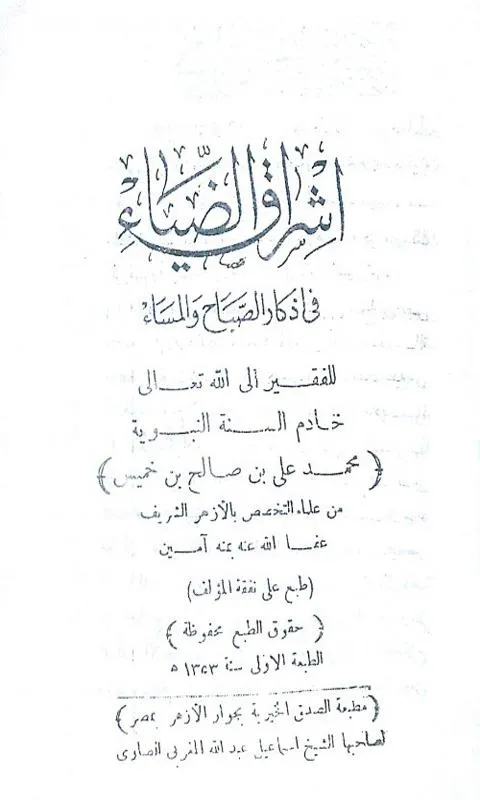 إشراق الضياء
في أذكار الصباح والمساء
للفقير الى الله تعالى
خادم السنة النبوية
﴿ محمد على بن صالح بن خميس ﴾
من علماء التخصص بالأزهر الشريف
عفا الله عنه بمنه آمين
(طبع على نفقة المؤلف)
﴿ حقوق الطبع محفوظة ﴾
الطبعة الاولى سنة ١٣٥٣ ه
﴿ مطبعة الصدق الخيرية بجوار الأزهر بمصر ﴾
لصاحبها الشيخ اسماعيل عبد الله المغربى الصاوى